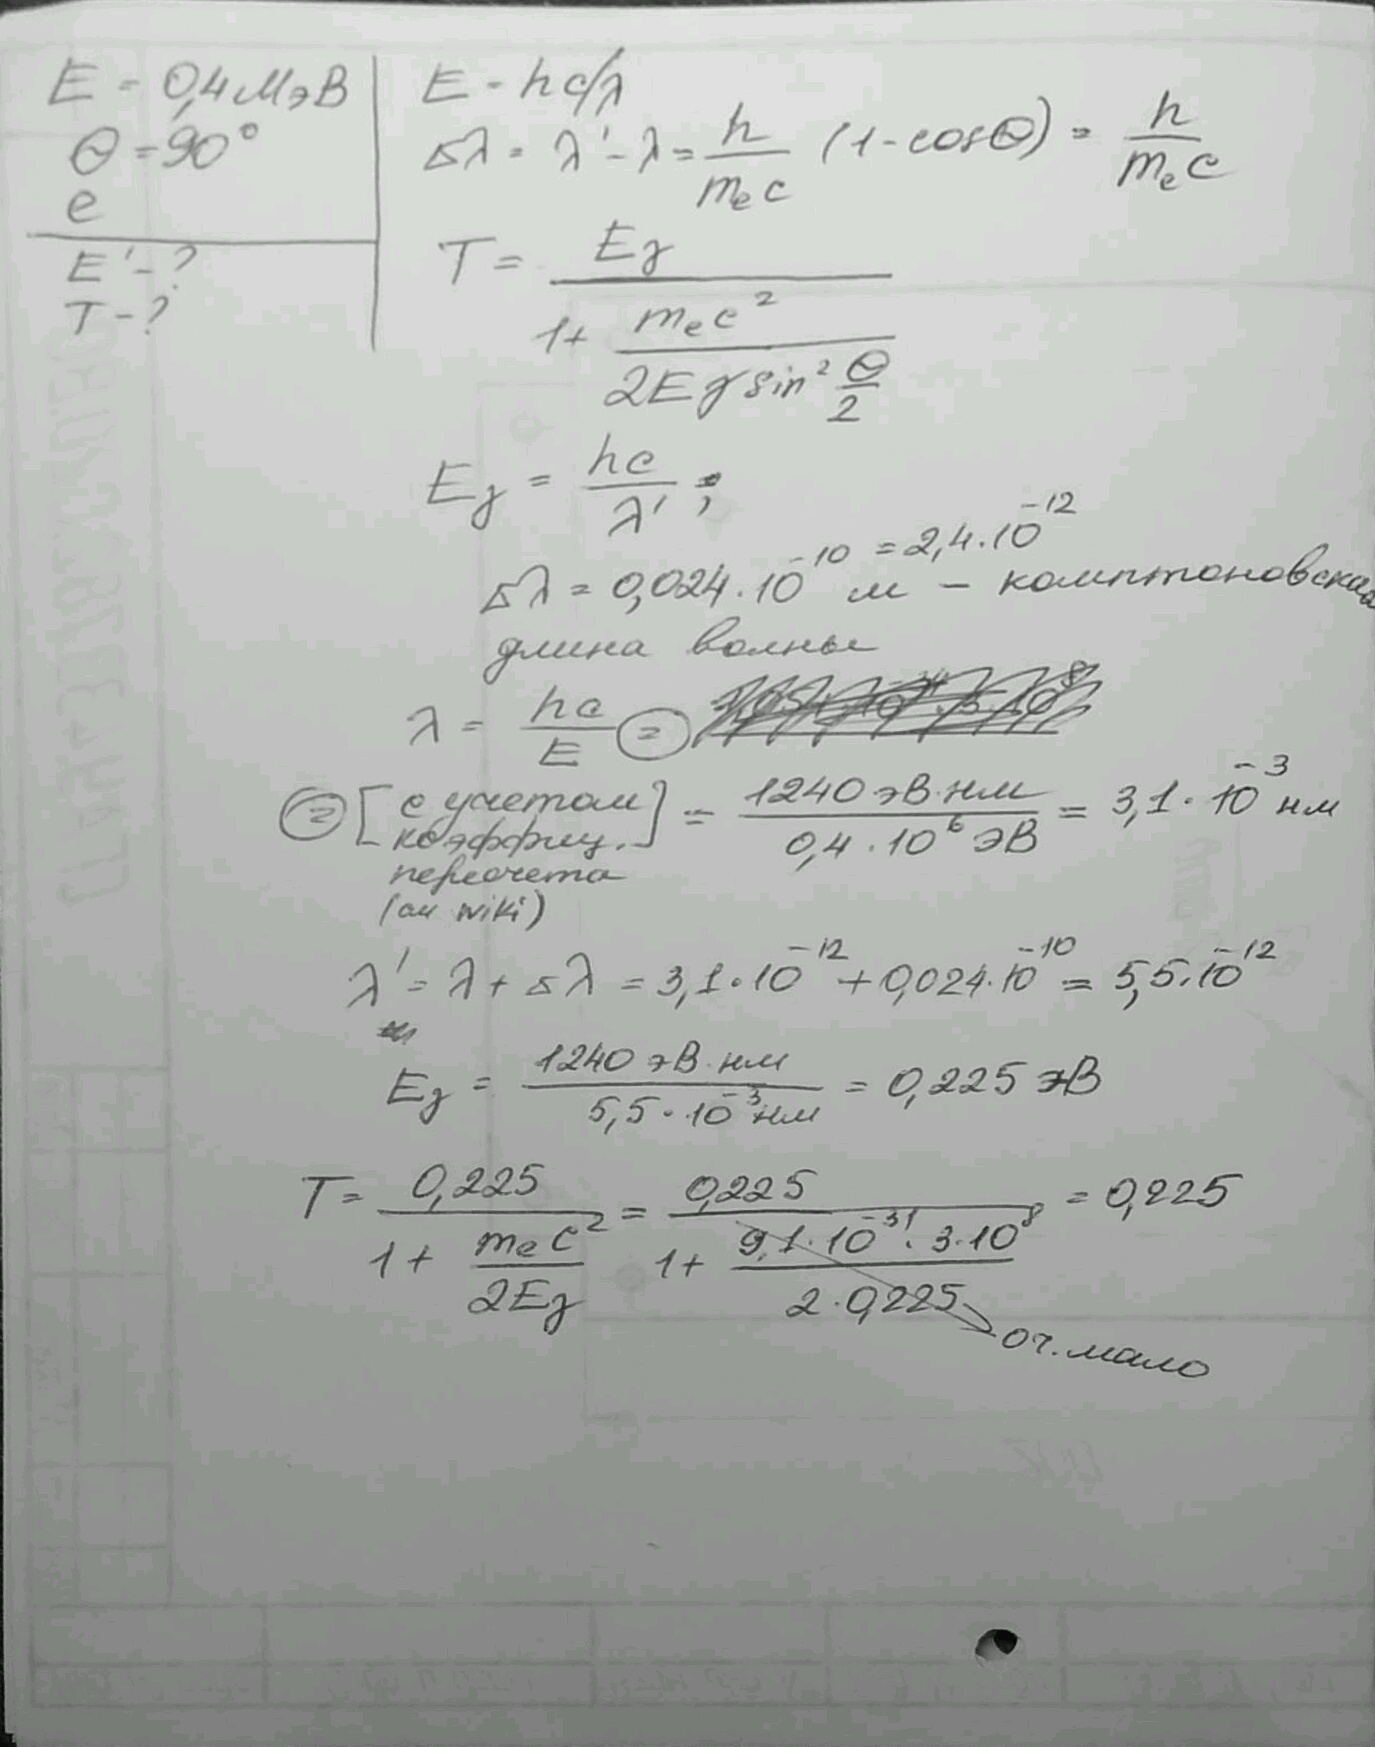 E = 0,4 МэВ
Θ = 90°
e
E' - ?
T - ?
E = hc/λ
Δλ = λ' - λ = h/(mₑc) (1 - cosΘ) = h/(mₑc)
T = Eγ / (1 + mₑc² / (2Eγ sin² Θ/2))
Eγ = hc/λ' ;
Δλ = 0,024·10⁻¹⁰ м = 2,4·10⁻¹² - комптоновская
длина волны
λ = hc/E =
= [с учетом коэффиц. пересчета (см wiki)] = 1240 эВ·нм / 0,4·10⁶ эВ = 3,1·10⁻³ нм
λ' = λ + Δλ = 3,1·10⁻¹² + 0,024·10⁻¹⁰ = 5,5·10⁻¹²
Eγ = 1240 эВ·нм / 5,5·10⁻³ нм = 0,225 эВ
T = 0,225 / (1 + mₑc²/2Eγ) = 0,225 / (1 + 9,1·10⁻³¹·3·10⁸ / 2·0,225) = 0,225
оч. мало